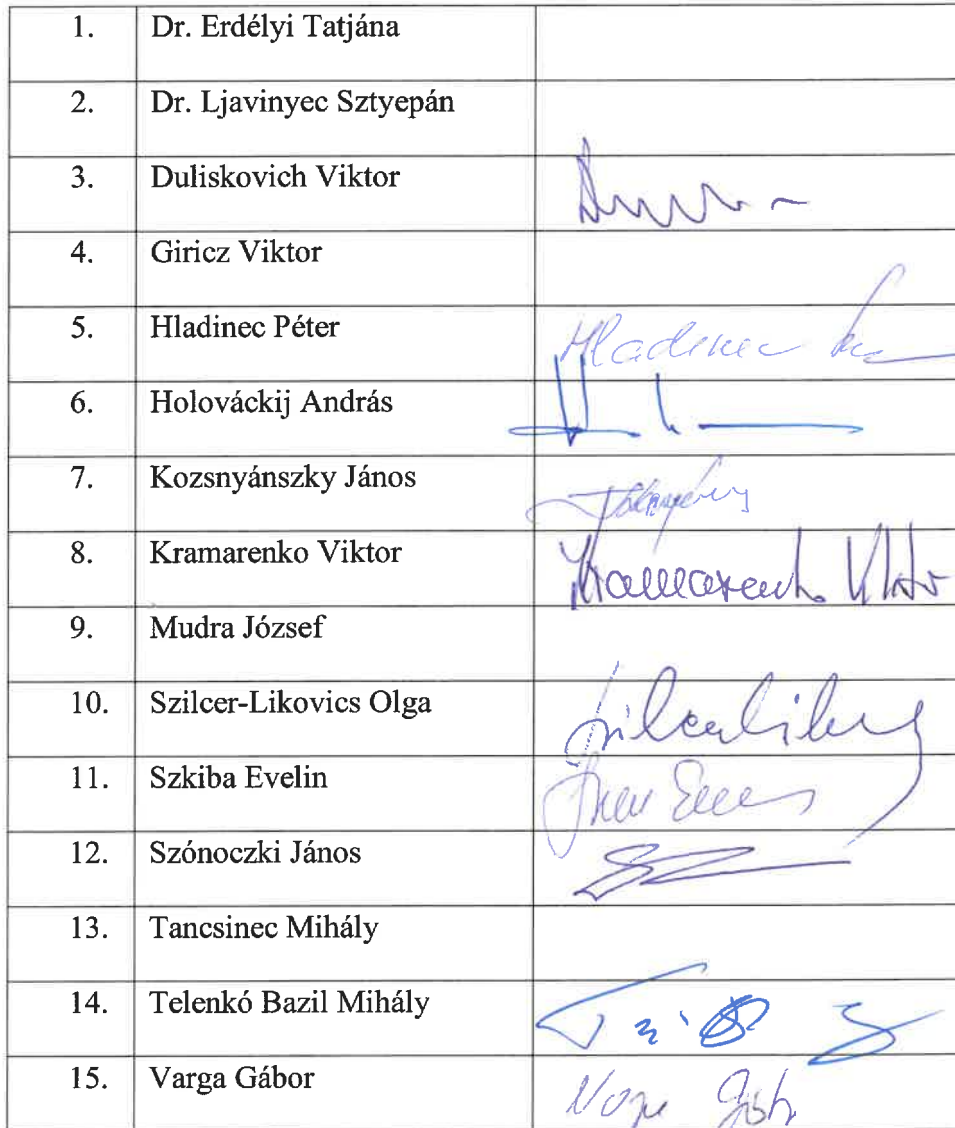 1. Dr. Erdélyi Tatjána
2. Dr. Ljavinyec Sztyepán
3. Duliskovich Viktor
4. Giricz Viktor
5. Hladinec Péter Hladinec
6. Holováckij András
7. Kozsnyánszky János
8. Kramarenko Viktor Kramarenko Viktor
9. Mudra József
10. Szilcer-Likovics Olga
11. Szkiba Evelin
12. Szónoczki János
13. Tancsinec Mihály
14. Telenkó Bazil Mihály
15. Varga Gábor